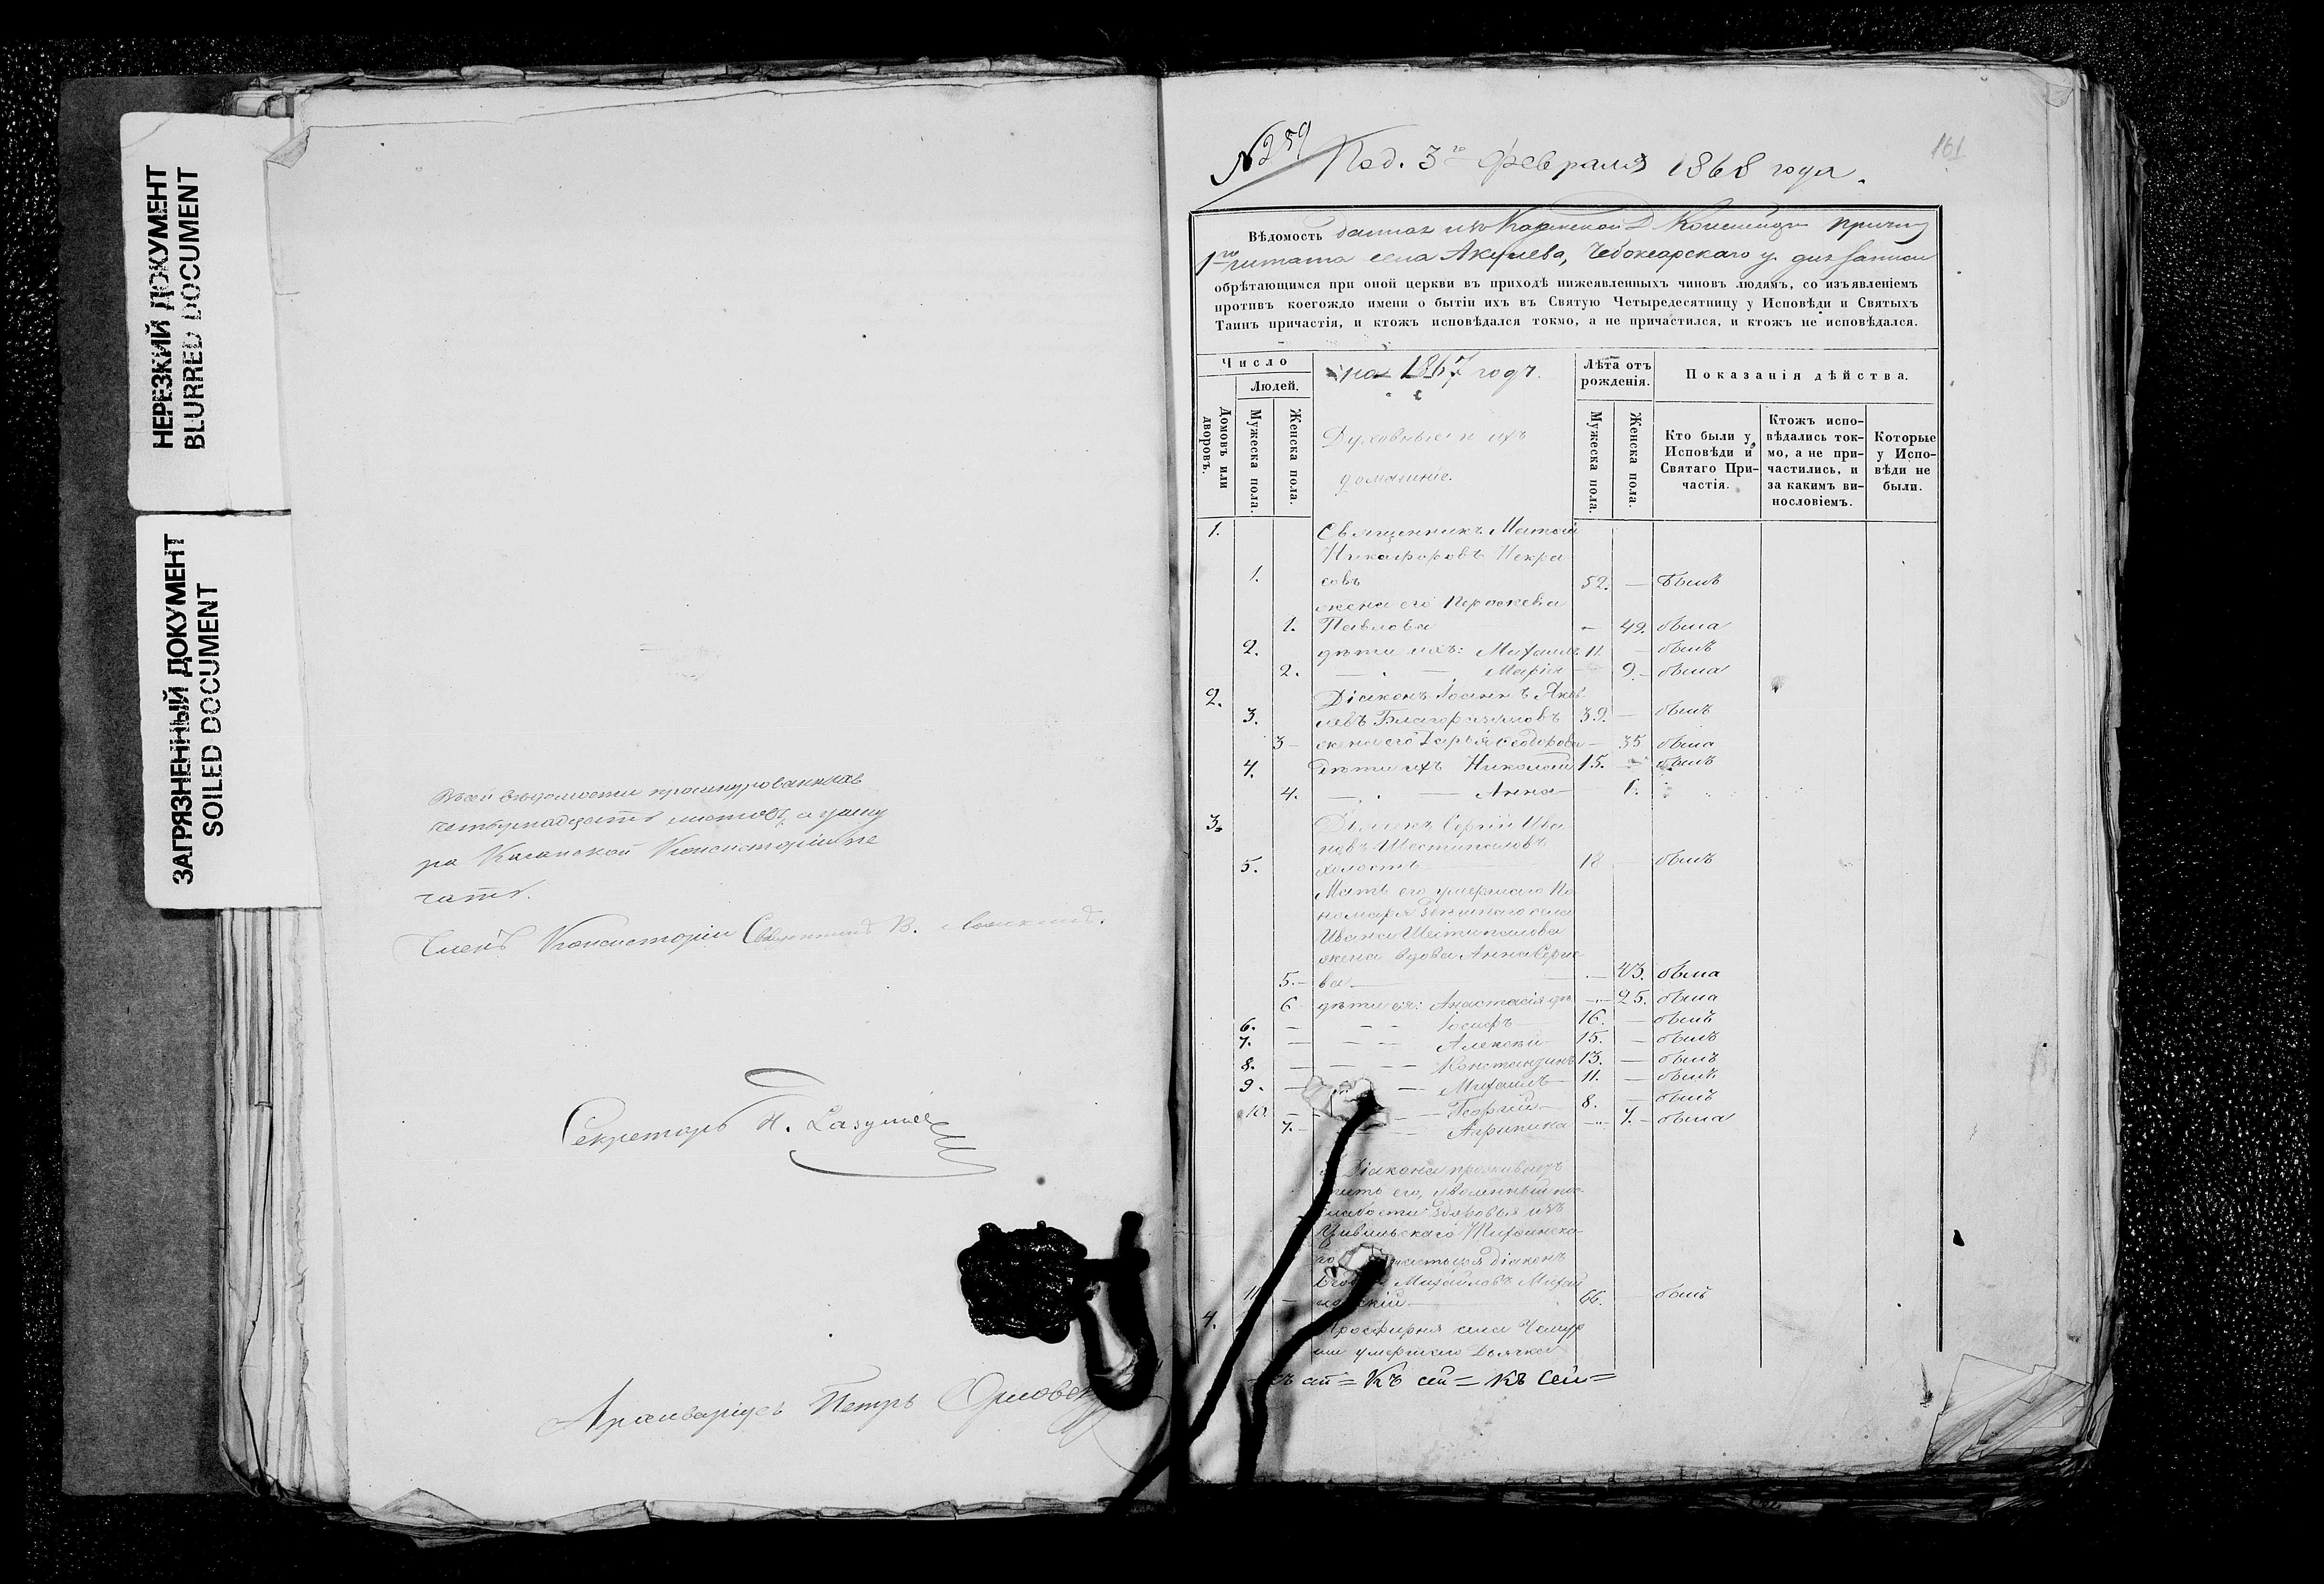 НЕРЕЗКИЙ ДОКУМЕНТ
BLURRED DOCUMENT
ЗАГРЯЗНЕННЫЙ ДОКУМЕНТ
SOILED DOCUMENT
Въ сей вѣдомости прошнурованныхъ
четырнадцать листовъ, а у шну
ра Казанской Консисторіи пе
чать.
Членъ Консисторіи Священникъ В.
Секретарь Н.
Архиваріусъ Петръ
№ 259
Под. 3го февраля 1868 года.
161
Вѣдомость данная изъ Казанской Д. Консисторіи причту
1го штата села Акулева, Чебоксарскаго у. для записи
обрѣтающимся при оной церкви въ приходѣ нижеявленныхъ чиновъ людямъ, со изъявленіемъ
противъ коегождо имени о бытіи ихъ въ Святую Четыредесятницу у Исповѣди и Святыхъ
Таинъ причастія, и ктожъ исповѣдался токмо, а не причастился, и ктожъ не исповѣдался.
Число
Людей.
Домовъ или дворовъ.
Мужеска пола.
Женска пола.
на 1867 годъ.
Духовные и ихъ
домашніе.
Лѣта отъ рожденія.
Мужеска пола.
Женска пола.
Показанія дѣйства.
Кто были у Исповѣди и Святаго Причастія.
Ктожъ исповѣдались токмо, а не причастились, и за какимъ винословіемъ.
Которые у Исповѣди не были.
1. Священникъ Матѳій
Никифоровъ Некра
1. совъ 52. — былъ
жена его Параскева
1. Павлова — 49. была
2. дѣти ихъ: Михаилъ 11. — былъ
2. — Марія — 9. была
2. Діаконъ Іоаннъ Яков
3. левъ Благоразумовъ 39. — былъ
3 жена его Дарья Ѳеодорова — 35 была
4. Дѣти ихъ Николай 15. былъ
4. — Анна — 1.
3. Дьячекъ Сергій Ива
новъ Шестипаловъ
5. холостъ 18 — былъ
Мать его, умершаго По
номаря здѣшняго села
Ивана Шестипалова
жена вдова Анна Серге
5. ва — 43. была
6 дѣти ея: Анастасія дѣв. — 25. была
6. — Іосифъ 16. — былъ
7. — Алексѣй 15. — былъ
8. — Константинъ 13. — былъ
9. — Михаилъ 11. — былъ
10. — Георгій 8. — былъ
7. — Агрипина — 7. была
Діакона проживаетъ
зять его, уволенный по
слабости здоровья изъ
Цивильскаго Тихвинска
діаконъ
Михайловъ Михай
11. ловскій 66. — былъ
4. Просфирня села Чемур
ши умершаго Дьячка
къ сей = къ сей =